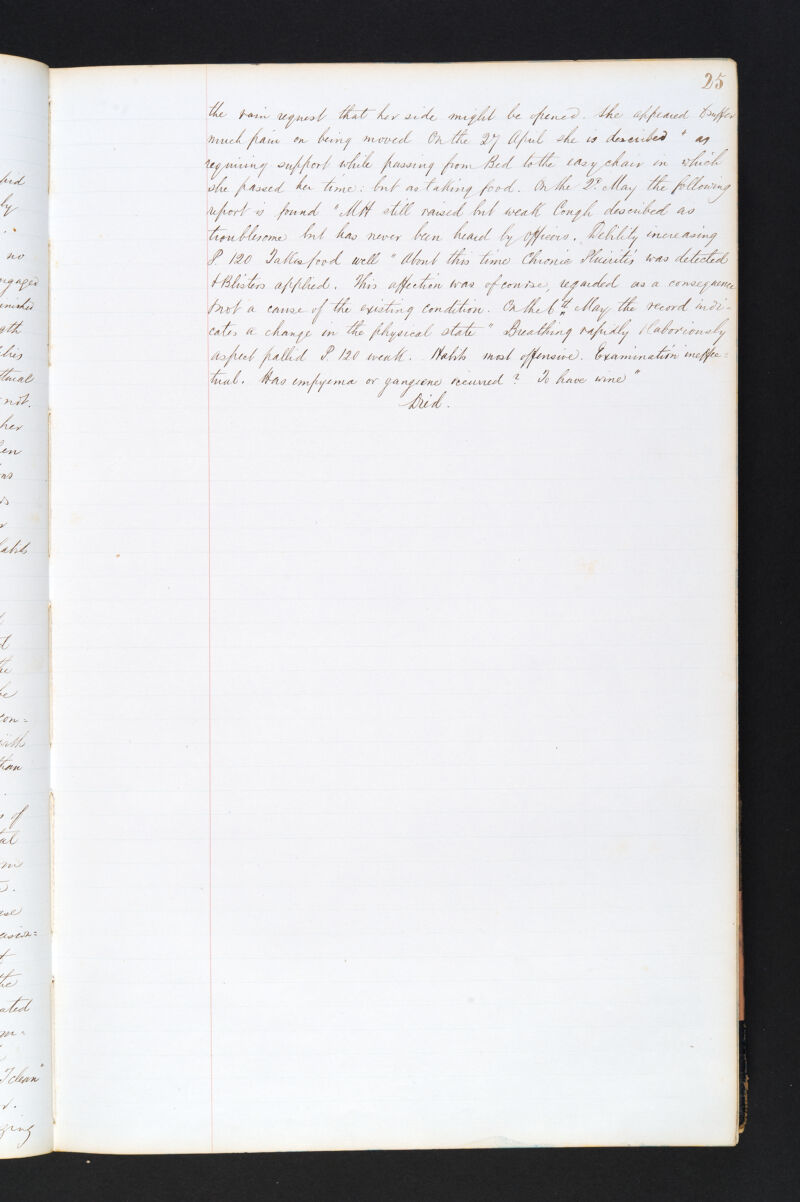 25
the vain request that her side might be opened. She appeared to suffer
much pain on being moved On the 27 April she is described " as
requiring support while passing from Bed to the easy chair in which
she passed her time: but as taking food. On the 2d May the following
report is found " MH still raised but weak Cough described as
troublesome but has never been heard by officers. Debility increasing
P 120 Takes food well " About this time Chronic Pleuritis was detected
& Blisters applied. This affection was of course, regarded as a consequence
& not a cause of the existing condition. On the 6th May the record indi-
cates a change in the physical state " Breathing rapidly & laboriously
aspect pallid P 120 weak. Habits most offensive. Examination ineffec=
tual. Has empyema or gangrene occurred? To have wine "
Died.
no
her
con=
than
of
the
ated
"Iclean"